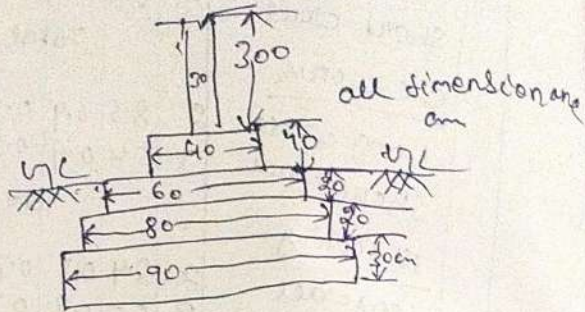 300
30
all dimension are
cm
40
40
G.L
G.L
60
20
80
20
90
30cm